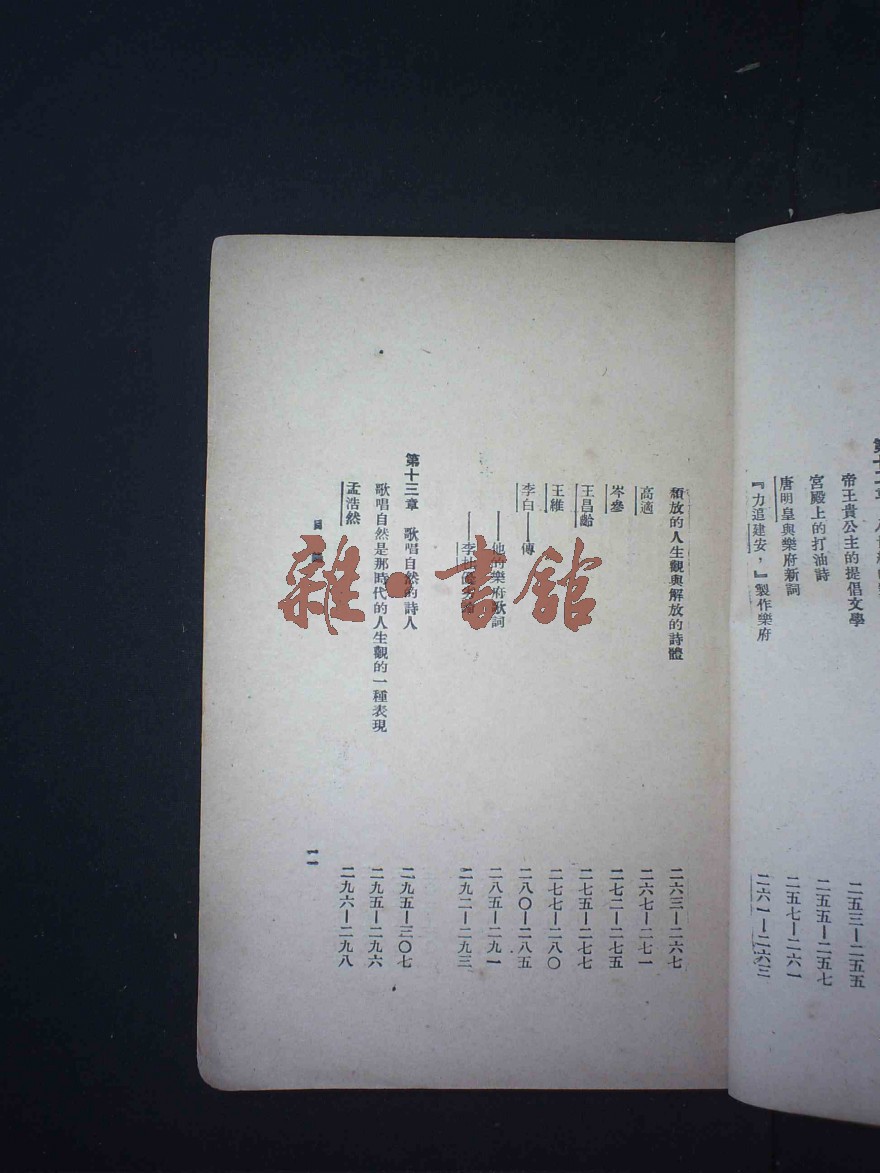 帝王貴公主的提倡文學 二五三—二五五
宮殿上的打油詩 二五五—二五七
唐明皇與樂府新詞 二五七—二六一
『力追建安,』製作樂府 二六一—二六三
頹放的人生觀與解放的詩體 二六三—二六七
高適 二六七—二七一
岑參 二七二—二七五
王昌齡 二七五—二七七
王維 二七七—二八〇
李白—傳 二八〇—二八五
——他的樂府歌詞 二八五—二九一
——李杜優劣論 二九二—二九三
第十三章 歌唱自然的詩人 二九五—三〇七
歌唱自然是那時代的人生觀的一種表現 二九五—二九六
孟浩然 二九六—二九八
目
一一
雜·書館